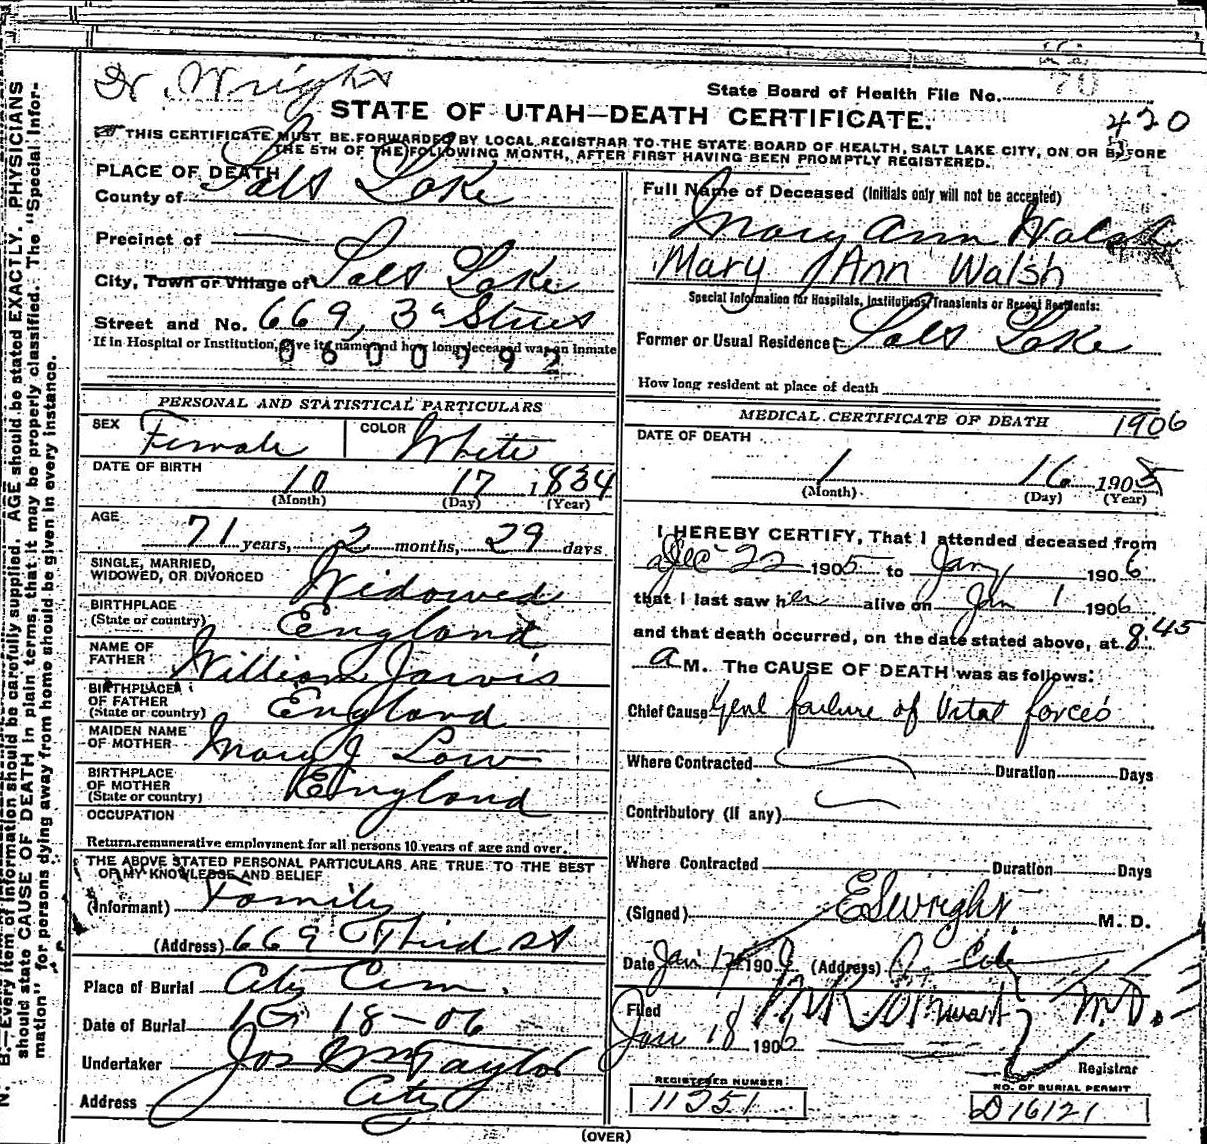 Dr. Wright
State Board of Health File No. 70
STATE OF UTAH—DEATH CERTIFICATE.
420
THIS CERTIFICATE MUST BE FORWARDED BY LOCAL REGISTRAR TO THE STATE BOARD OF HEALTH, SALT LAKE CITY, ON OR BEFORE
THE 5TH OF THE FOLLOWING MONTH, AFTER FIRST HAVING BEEN PROMPTLY REGISTERED.
PLACE OF DEATH
County of Salt Lake
Precinct of
City, Town or Village of Salt Lake
Street and No. 669, 3d Street
If in Hospital or Institution, give its name and how long deceased was an inmate
0600992
PERSONAL AND STATISTICAL PARTICULARS
SEX Female COLOR White
DATE OF BIRTH
10 17 1834
(Month) (Day) (Year)
AGE
71 years, 2 months, 29 days
SINGLE, MARRIED,
WIDOWED, OR DIVORCED Widowed
BIRTHPLACE
(State or country) England
NAME OF
FATHER William Jarvis
BIRTHPLACE
OF FATHER
(State or country) England
MAIDEN NAME
OF MOTHER Mary J Low
BIRTHPLACE
OF MOTHER
(State or country) England
OCCUPATION
Return remunerative employment for all persons 10 years of age and over.
THE ABOVE STATED PERSONAL PARTICULARS ARE TRUE TO THE BEST
OF MY KNOWLEDGE AND BELIEF
(Informant) Family
(Address) 669 Third St
Place of Burial City Cem.
Date of Burial 18-06
Undertaker Jos Wm Taylor
Address City
Full Name of Deceased (Initials only will not be accepted)
Mary Ann Walsh
Mary Ann Walsh
Special Information for Hospitals, Institutions, Transients or Recent Residents:
Former or Usual Residence Salt Lake
How long resident at place of death
MEDICAL CERTIFICATE OF DEATH 1906
DATE OF DEATH
1 16 1905
(Month) (Day) (Year)
I HEREBY CERTIFY, That I attended deceased from
Dec 22 1905 to Jany 1906
that I last saw her alive on Jan 1 1906
and that death occurred, on the date stated above, at 8.45
a M. The CAUSE OF DEATH was as follows:
Chief Cause Genl failure of Vital forces
Where Contracted Duration Days
Contributory (If any)
Where Contracted Duration Days
(Signed) E S Wright M. D.
Date Jan 17 190 (Address)
Filed
Jan 18 1906
M R Stewart M.D.
Registrar
REGISTERED NUMBER
11351
NO. OF BURIAL PERMIT
D16121
(OVER)
N. B.—Every item of information should be carefully supplied. AGE should be stated EXACTLY. PHYSICIANS
should state CAUSE OF DEATH in plain terms, that it may be properly classified. The "Special Infor-
mation" for persons dying away from home should be given in every instance.